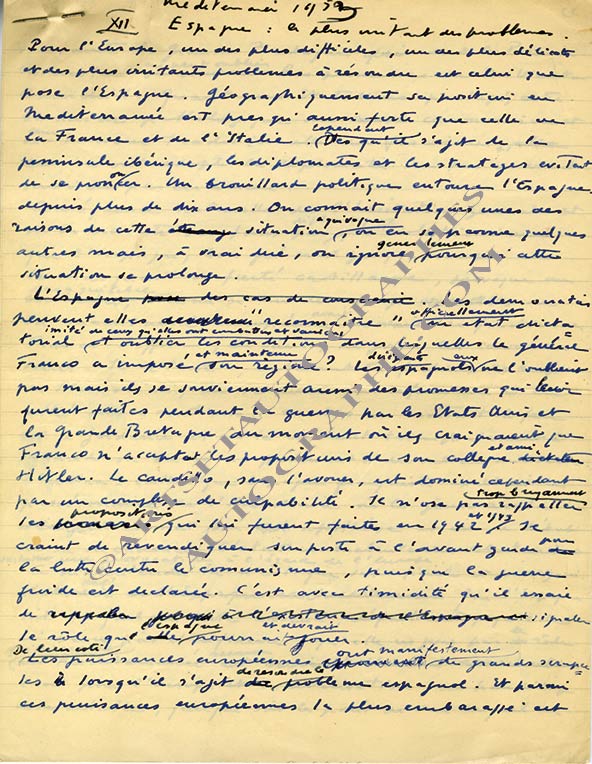 Mediterranée 195
XII Espagne : le plus irritant des problèmes.
Pour l'Europe, un des plus difficiles, un des plus délicats
et des plus irritants problèmes à résoudre est celui que
pose l'Espagne. Géographiquement sa position en
Mediterranée est presqu'aussi forte que celle de
la France et de l'Italie. cependant Dès qu'il s'agit de la
peninsule ibérique, les diplomates et les stratèges evitent
de se prononcer. Un brouillard politique entoure l'Espagne
depuis plus de dix ans. On connait quelques unes des
raisons de cette situation equivoque, on en soupçonne quelques
autres mais, à vrai dire, on ignore generalement pourquoi cette
situation se prolonge.
L'Espagne des cas de conscience. Les démocraties
peuvent elles "reconnaitre" officiellement un état dicta=
torial imité de ceux qu'elles ont combattus et vaincus et oublier les conditions dans lesquelles le général
Franco a imposé et maintenu son régime? Les espagnols ne l'oublient
pas mais ils se souviennent aussi des promesses qui leur
furent faites pendant la guerre par les Etats Unis et
la Grande Bretagne au moment où ils craignaient que
Franco n'acceptat les propositions de son collègue et ami
Hitler. Le caudillo, sans l'avouer, est dominé cependant
par un complexe de culpabilité. Il n'ose pas rappeller trop bruyamment
les propositions qui lui furent faites en 1942 et 1943. Il se
craint de revendiquer son poste à l'avant garde pour
la lutte contre le communisme, puisque la guerre
froide est declarée. C'est avec timidité qu'il essaie
de signaler
le rôle que l'Espagne pourrait et devrait jouer.
De leur coté Les puissances européennes ont manifestement de grands scrupu=
les lorsqu'il s'agit de resoudre le problème espagnol. Et parmi
ces puissances européennes la plus embarassée est
@ARTSETAUTOGRAPHES
AUTOGRAPHE.COM